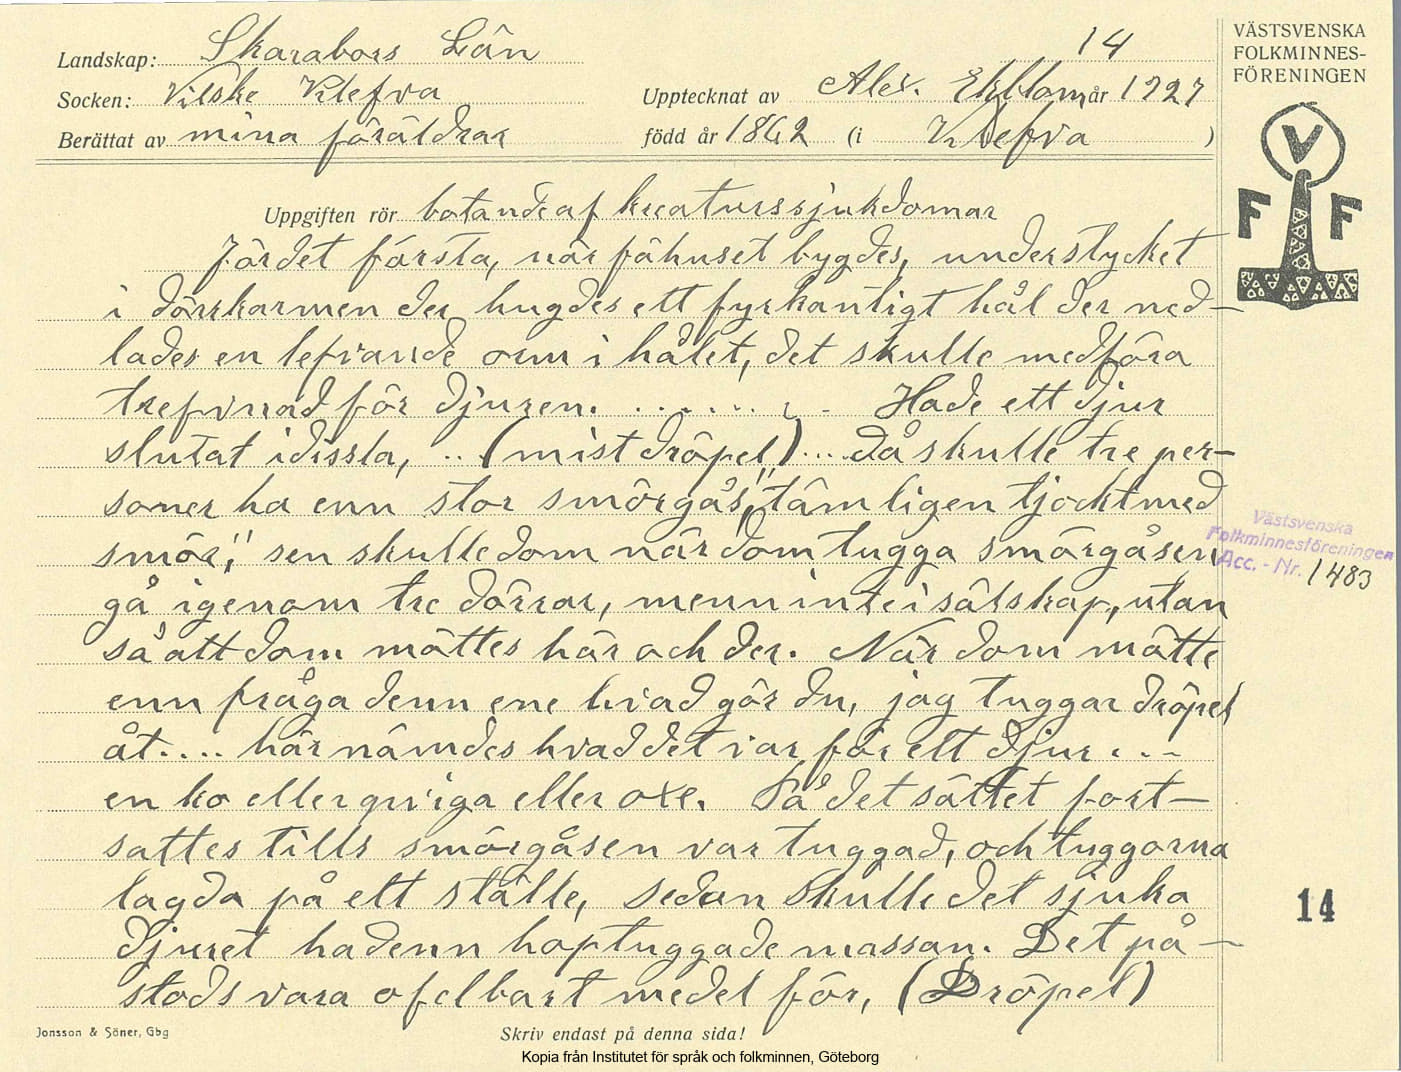 14
Landskap: Skarabors Län
Socken: Vilske Klefva
Upptecknat av Alex. Ekblom år 1927
Berättat av mina föräldrar
född år 1862 (i Klefva )
VÄSTSVENSKA
FOLKMINNES-
FÖRENINGEN
V
F F
Uppgiften rör botande af kreaturssjukdomar
För det första, när fähuset bygdes, understycket
i dörrkarmen der hugdes ett fyrkantigt hål der ned-
lades en lefvande orm i hålet, det skulle medföra
trefvnad för djuren. . . . . . . Hade ett djur
slutat idissla, .. (mist dröpel) .... då skulle tre per-
soner ha enn stor smörgås, "tämligen tjockt med
smör," sen skulle dom när dom tugga smörgåsen
gå igenom tre dörrar, menn inte i sälskap, utan
så att dom möttes här och der. När dom mötte
enn fråga denn ene hvad gör du, jag tuggar dröpel
åt.... här nämdes hvad det var för ett djur . . -
en ko eller qviga eller oxe. På det sättet fort-
sattes tills smörgåsen var tuggad, och tuggorna
lagda på ett ställe, sedan skulle det sjuka
djuret ha denn hoptuggade massan. Det på-
stods vara ofelbart medel för, (Dröpel)
Västsvenska
Folkminnesföreningen
Acc. - Nr. 1483
14
Jonsson & Söner, Gbg
Skriv endast på denna sida!
Kopia från Institutet för språk och folkminnen, Göteborg